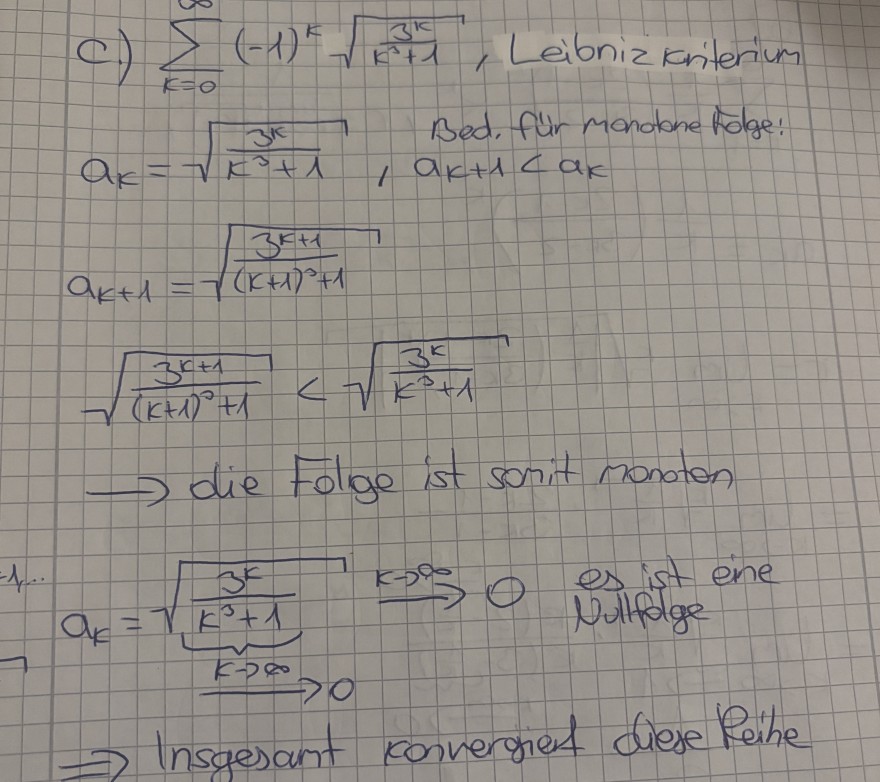 c.) ∞ ∑ k=0 (-1)^k √(3^k / k³+1) , Leibnizkriterium
Bed. für monotone Folge:
a_k = √(3^k / k³+1) , a_k+1 < a_k
a_k+1 = √(3^k+1 / (k+1)³+1)
√(3^k+1 / (k+1)³+1) < √(3^k / k³+1)
→ die Folge ist somit monoton
-1,..
a_k = √(3^k / k³+1) k→∞ → 0 es ist eine
Nullfolge
k→∞ → 0
⇒ Insgesamt konvergiert diese Reihe